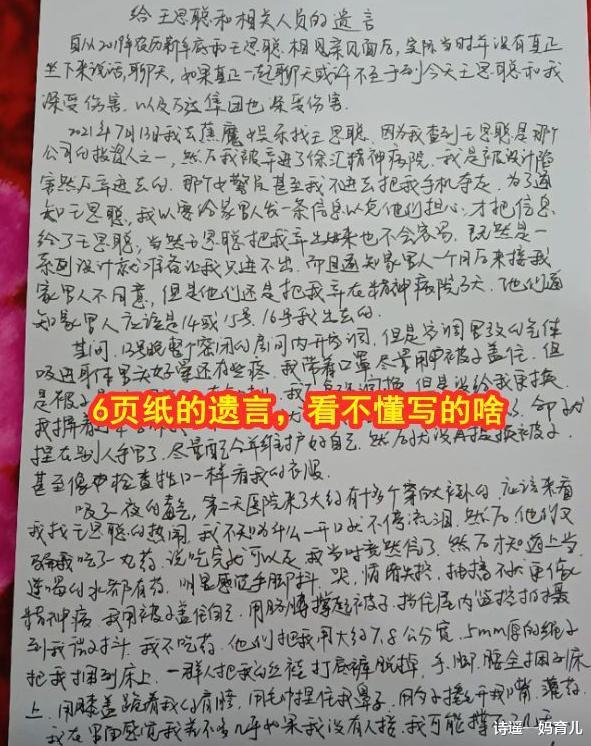 给王思聪和相关人员的遗言
自从2019年农历新年底和王思聪相见亲见面后,实际当时并没有真正
坐下来说话,聊天,如果真正一起聊天或许不至于到今天王思聪和我
深受伤害.以及万达集团也深受伤害.
2021年7月13日我去蕉魔娱乐找王思聪.因为我查到王思聪是那个
公司的投资人之一,然后我被弄进了徐汇精神病院.我是被设计陷
害然后弄进去的.那个女警反甚至我不进去把我手机夺走.为了通
知王思聪,我以要给家里人发一条信息以免他们担心.才把信息
给了王思聪,当然王思聪把我弄出来也不会容易.既然是一
系列设计就准备让我只进不出.而且通知家里人一个月后来接我
家里人不同意,但是他们还是把我弄在精神病院3天.他们通
知家里人应该是14或15号.16号我出去的.
期间.13号晚整个密闭的房间内开空调,但是空调里放的气体
吸进身体里头好晕还有些疼.我带着口罩尽量用被子盖住.但
是被子
我撑着
6页纸的遗言,看不懂写的啥
捏在别人手里了.尽量配合并维护好自己.然后
甚至像 检查牲口一样看我的衣服
吸了一夜的毒气,第二天医院来了大约有十多个穿白大褂的.应该来看
我找王思聪的热闹.我不知为什么一开口就不停流泪.然后他们又
骗我吃了一丸药.说吃完就可以走.我当时竟然信了.然后才知道上当
连喝的水都有药.明显感觉手脚抖.哭,情绪失控,抽搐不止更像
精神病 我用被子盖住自己.用胳膊撑起被子.挡住屋内监控拍摄
到我 抖.我不吃药.他们把我用大约7,8公分宽.5mm厚的绳子
把我捆到床上.一群人把我的丝袜打底裤脱掉,手.脚.腰全捆到床
上.用膝盖跪着我的肩膀.用毛巾捏住我鼻子.用勺子撬开我嘴灌药.
我在里面感觉我差不多几乎如果我没有人搭.我可能撑
诗遥一妈育儿